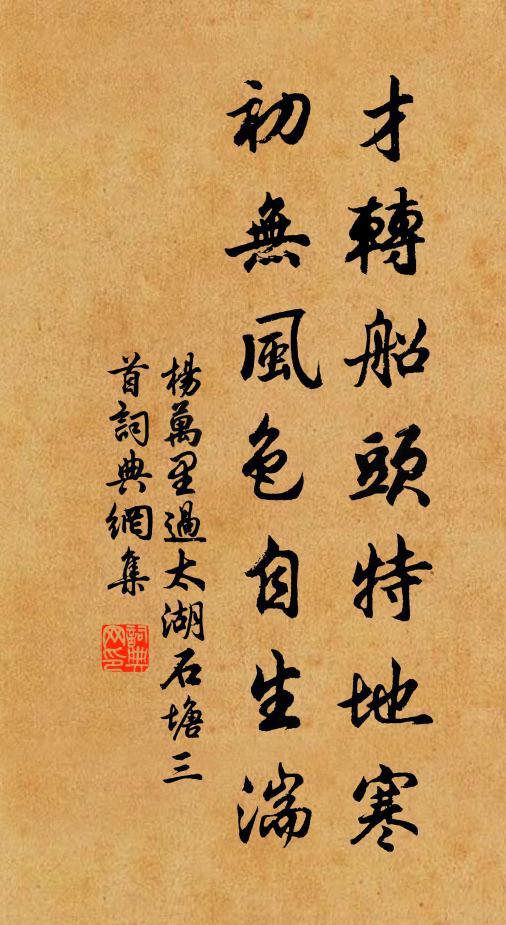 才轉船頭特地寒
初無風色自生湍
楊萬里過太湖石塘三
首詞典網集
詞典網印